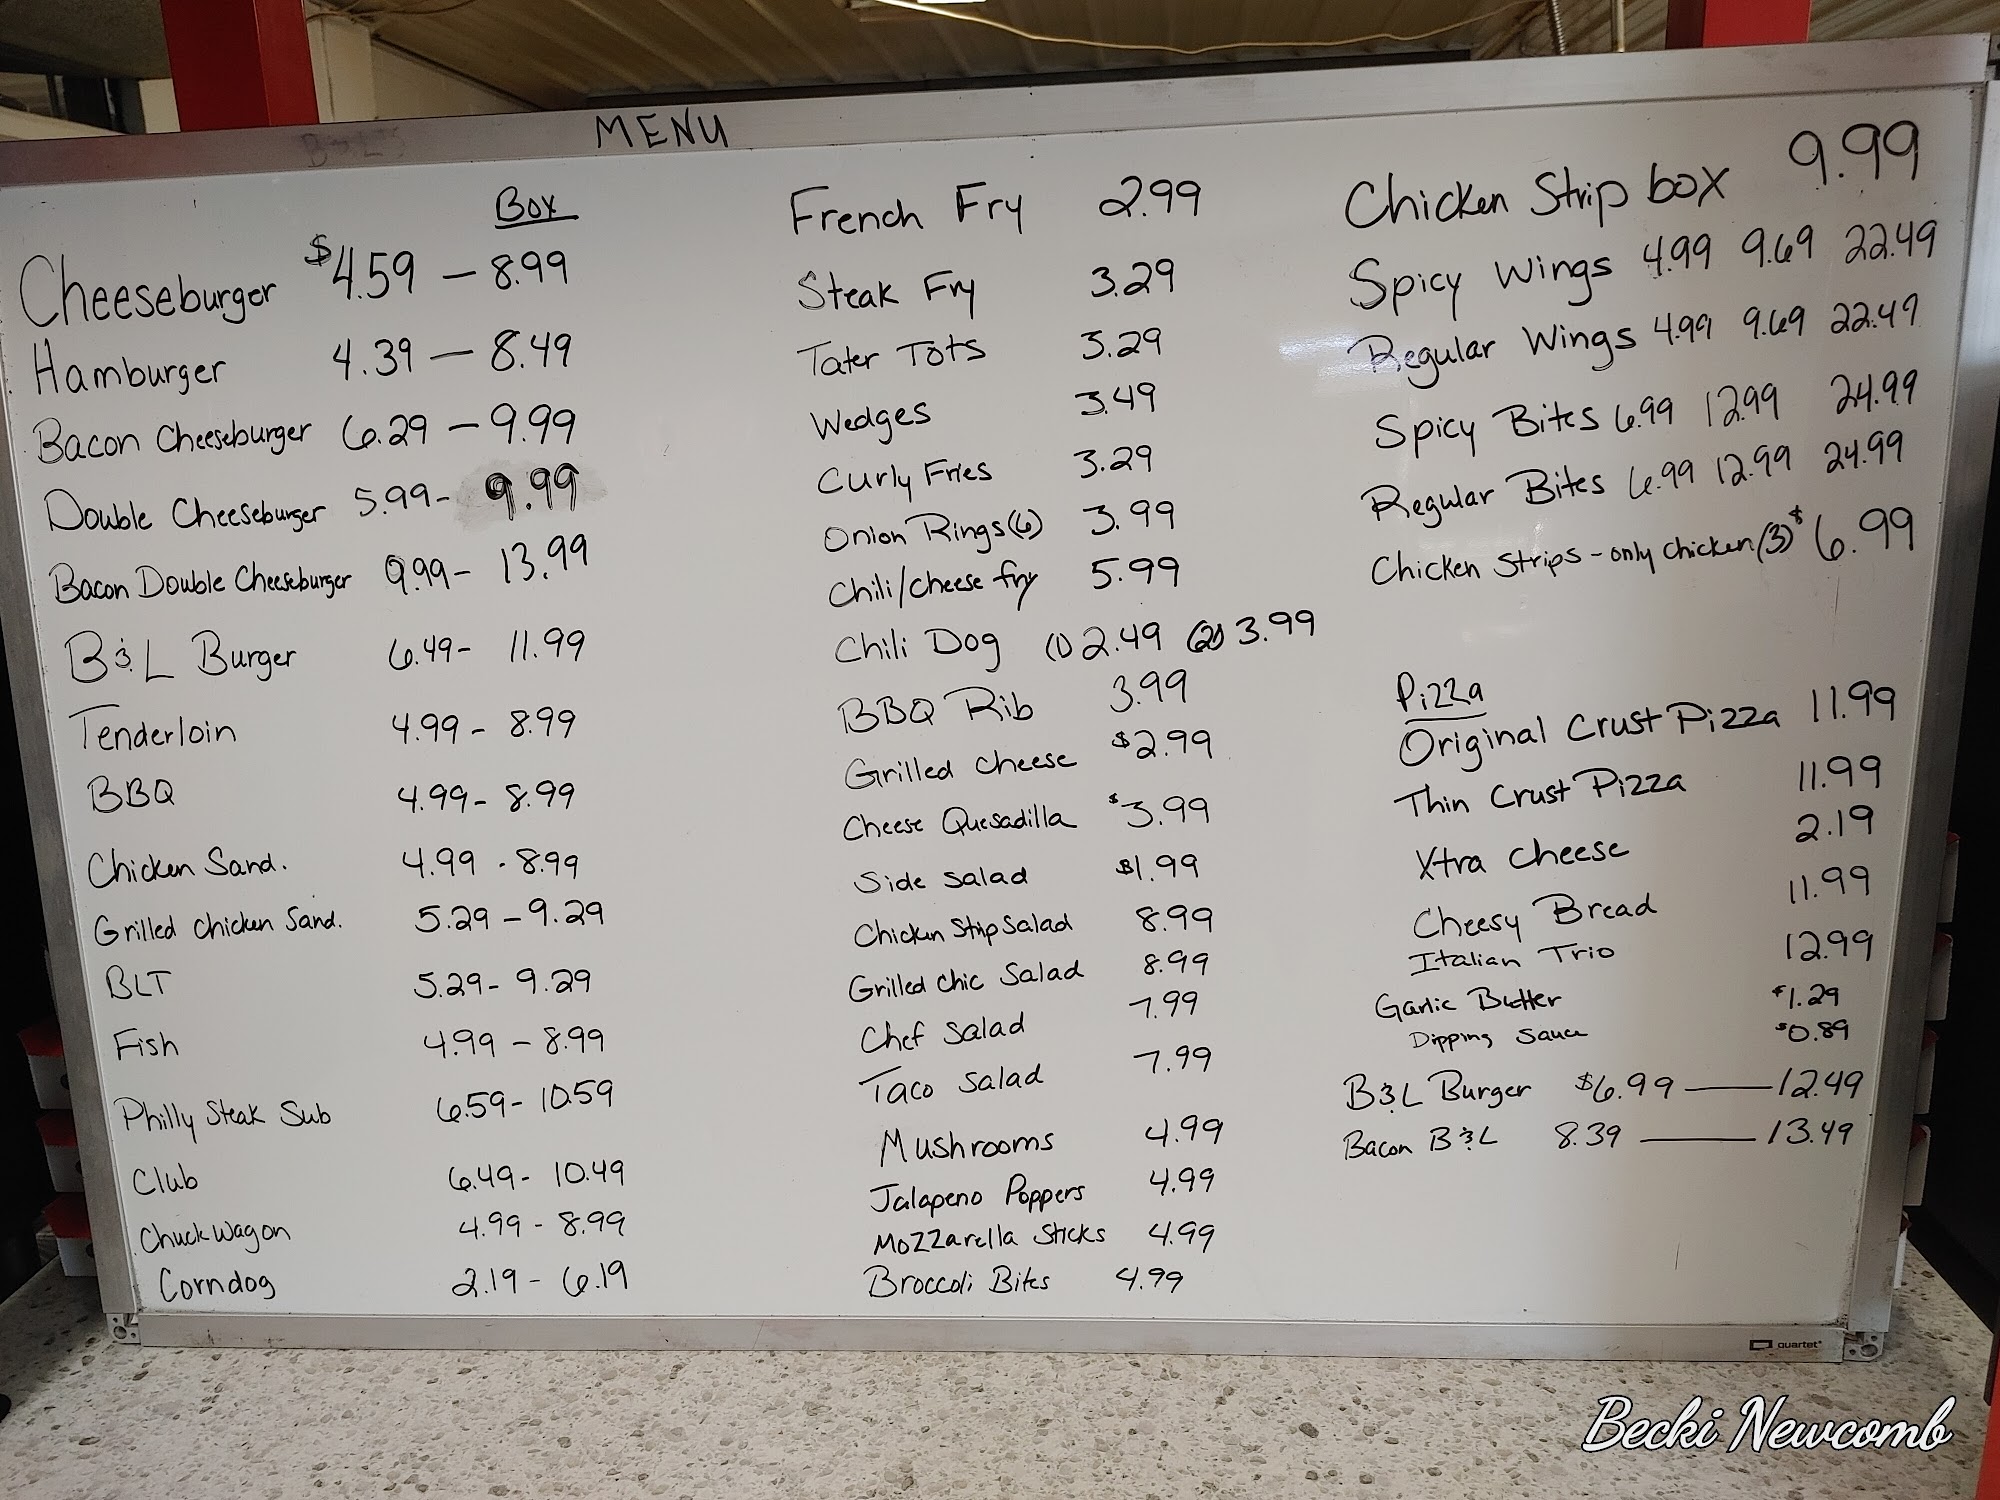 MENU
Box
Cheeseburger $4.59 - 8.99
Hamburger 4.39 - 8.49
Bacon Cheeseburger 6.29 - 9.99
Double Cheeseburger 5.99 - 9.99
Bacon Double Cheeseburger 9.99 - 13.99
B&L Burger 6.49 - 11.99
Tenderloin 4.99 - 8.99
BBQ 4.99 - 8.99
Chicken Sand. 4.99 - 8.99
Grilled Chicken Sand. 5.29 - 9.29
BLT 5.29 - 9.29
Fish 4.99 - 8.99
Philly Steak Sub 6.59 - 10.59
Club 6.49 - 10.49
Chuckwagon 4.99 - 8.99
Corndog 2.19 - 6.19
French Fry 2.99
Steak Fry 3.29
Tater Tots 3.29
Wedges 3.49
Curly Fries 3.29
Onion Rings (6) 3.99
Chili/cheese fry 5.99
Chili Dog (1) 2.49 (2) 3.99
BBQ Rib 3.99
Grilled Cheese $2.99
Cheese Quesadilla $3.99
Side Salad $1.99
Chicken Strip Salad 8.99
Grilled Chic Salad 8.99
Chef Salad 7.99
Taco Salad 7.99
Mushrooms 4.99
Jalapeno Poppers 4.99
Mozzarella Sticks 4.99
Broccoli Bites 4.99
Chicken Strip box 9.99
Spicy Wings 4.99 9.69 22.49
Regular Wings 4.99 9.69 22.49
Spicy Bites 6.99 12.99 24.99
Regular Bites 6.99 12.99 24.99
Chicken Strips - only chicken (3) $6.99
Pizza
Original Crust Pizza 11.99
Thin Crust Pizza 11.99
Xtra Cheese 2.19
Cheesy Bread 11.99
Italian Trio 12.99
Garlic Butter $1.29
Dipping Sauce $0.89
B&L Burger $6.99 - 12.49
Bacon B&L 8.39 - 13.49
quartet
Becki Newcomb